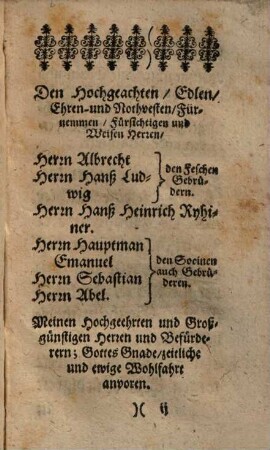 Den Hochgeachten / Edlen /
Ehren- und Nothvesten / Für-
nemmen / Fürsichtigen und
Weisen Herren /
Herrn Albrecht
Herrn Hanß Lud-
wig
den Feschen
Gebrü-
dern.
Herrn Hanß Heinrich Ryhi-
ner.
Herrn Hauptman
Emanuel
Herrn Sebastian
Herrn Abel.
den Socinen
auch Gebrü-
deren.
Meinen Hochgeehrten und Groß-
günstigen Herren und Befürde-
rern; Gottes Gnade / zeitliche
und ewige Wohlfahrt
anvoren.
)( ij